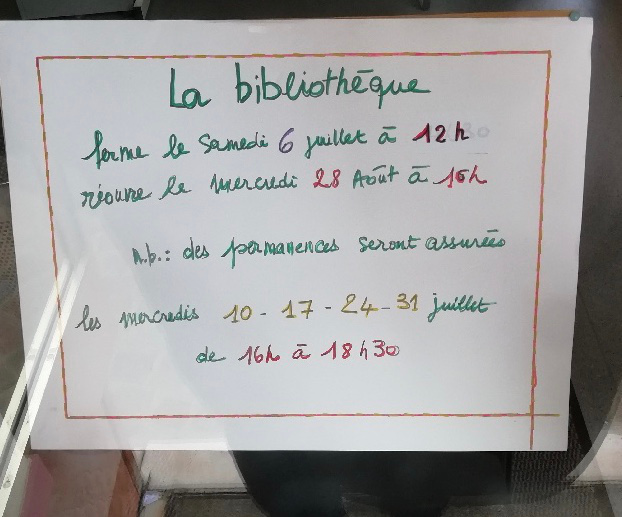 La bibliothēque
ferme le Samedi 6 juillet ā 12h
réouvre le mercredi 28 Août ā 16h
n.b.: des permanences seront assurées
les mercredis 10 - 17 - 24 - 31 juillet
de 16h ā 18h30